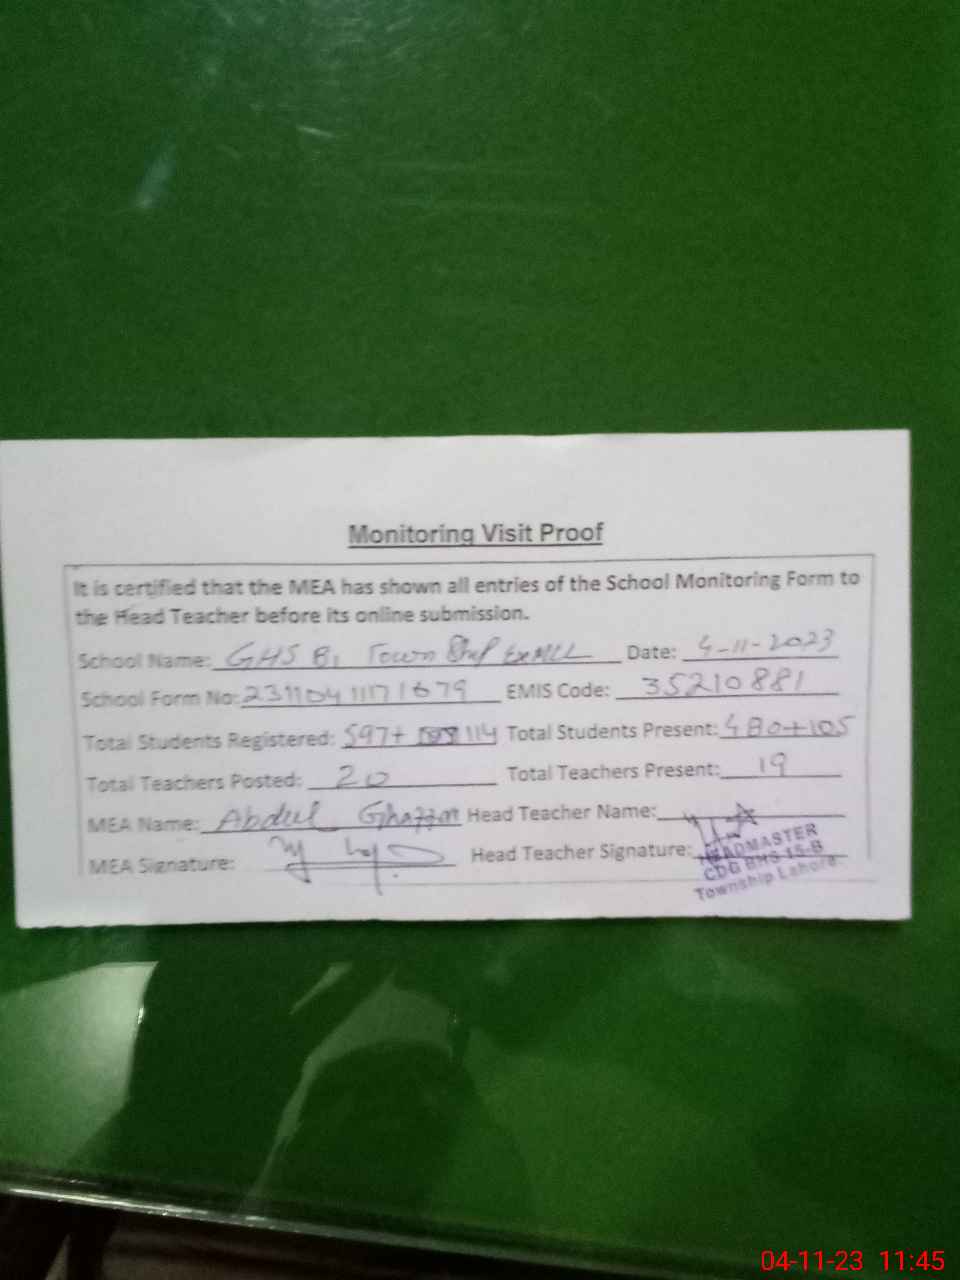 Monitoring Visit Proof
It is certified that the MEA has shown all entries of the School Monitoring Form to
the Head Teacher before its online submission.
School Name: GHS B1 Town Date: 4-11-2023
School Form No: EMIS Code: 35210881
Total Students Registered: 597+ 114 Total Students Present: 480+105
Total Teachers Posted: 20 Total Teachers Present: 19
MEA Name: Abdul Head Teacher Name:
MEA Signature: Head Teacher Signature:
HEADMASTER
CDG BHS 15-B
Township Lahore.
04-11-23 11:45